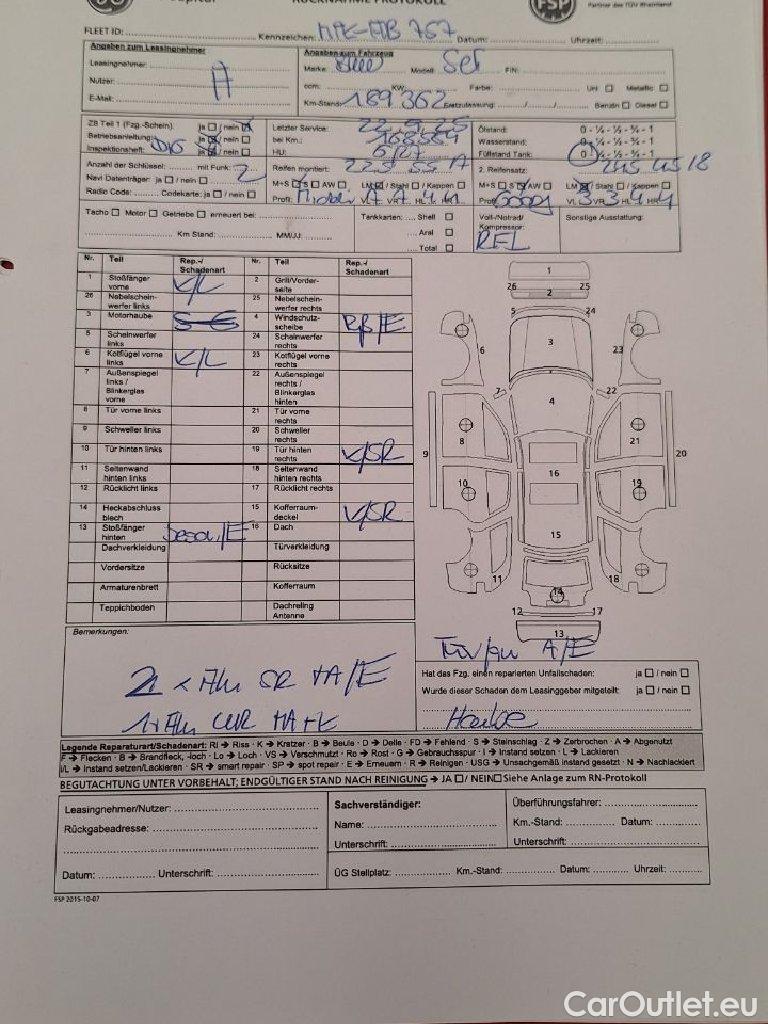 RÜCKNAHME PROTOKOLL
FSP
Partner des TÜV Rheinland
FLEET ID: Kennzeichen: 757 Datum: Uhrzeit:
Angaben zum Leasingnehmer
Leasingnehmer:
Nutzer:
E-Mail:
Angaben zum Fahrzeug
Marke Modell: FIN:
ccm: KW: Farbe: Uni Metallic
Km-Stand: 189 362 Erstzulassung: Benzin Diesel
ZB Teil 1 (Fzg.-Schein). ja / nein
Betriebsanleitung: ja / nein
Inspektionsheft: ja / nein
Letzter Service: 22.9.25
bei Km.:
HU: 6/27
Ölstand: 0 - ¼ - ½ - ¾ - 1
Wasserstand: 0 - ¼ - ½ - ¾ - 1
Füllstand Tank: 0 - ¼ - ½ - ¾ - 1
Anzahl der Schlüssel: mit Funk: 2
Navi Datenträger: ja / nein
Radio Code: Codekarte: ja / nein
Reifen montiert: 225 55
M+S S AW LM / Stahl / Kappen
Profil: VL 7 VR 7 HL 4 HR 4
2. Reifensatz: 245 45 18
M+S S AW LM / Stahl / Kappen
Profil VL 3 VR 3 HL 4 HR 4
Tacho Motor Getriebe erneuert bei:
Km Stand: MM/JJ:
Tankkarten: Shell
Aral
Total
Voll-/Notrad/
Kompressor:
RFL
Sonstige Ausstattung:
Nr. Teil Rep.-/ Schadenart Nr. Teil Rep.-/ Schadenart
1 Stoßfänger vorne K/L 2 Grill/Vorder-seite
26 Nebelschein-werfer links 25 Nebelschein-werfer rechts
3 Motorhaube 4 Windschutz-scheibe
5 Scheinwerfer links 24 Scheinwerfer rechts
6 Kotflügel vorne links K/L 23 Kotflügel vorne rechts
7 Außenspiegel links / Blinkerglas vorne 22 Außenspiegel rechts / Blinkerglas hinten
8 Tür vorne links 21 Tür vorne rechts
9 Schweller links 20 Schweller rechts
10 Tür hinten links 19 Tür hinten rechts K/SR
11 Seitenwand hinten links 18 Seitenwand hinten rechts
12 Rücklicht links 17 Rücklicht rechts
14 Heckabschluss blech 15 Kofferraum-deckel K/SR
13 Stoßfänger hinten 16 Dach
Dachverkleidung Türverkleidung
Vordersitze Rücksitze
Armaturenbrett Kofferraum
Teppichboden Dachreling Antenne
1
26 25
2
5 24
3
6 23
7 22
4
8 21
9 20
16
10 19
15
11 18
14
12 17
13
Bemerkungen:
A/E
Hat das Fzg. einen reparierten Unfallschaden: ja / nein
Wurde dieser Schaden dem Leasinggeber mitgeteilt: ja / nein
Legende Reparaturart/Schadenart: RI → Riss · K → Kratzer · B → Beule · D → Delle · FD → Fehlend · S → Steinschlag · Z → Zerbrochen · A → Abgenutzt
F → Flecken · B → Brandfleck, -loch · Lo → Loch · VS → Verschmutzt · Ro → Rost · G → Gebrauchsspur · I → Instand setzen · L → Lackieren
I/L → Instand setzen/Lackieren · SR → smart repair · SP → spot repair · E → Erneuern · R → Reinigen · USG → Unsachgemäß instand gesetzt · N → Nachlackiert
BEGUTACHTUNG UNTER VORBEHALT; ENDGÜLTIGER STAND NACH REINIGUNG → JA / NEIN Siehe Anlage zum RN-Protokoll
Leasingnehmer/Nutzer:
Rückgabeadresse:
Datum: Unterschrift:
Sachverständiger:
Name:
Unterschrift:
Überführungsfahrer:
Km.-Stand: Datum:
Unterschrift:
ÜG Stellplatz: Km.-Stand: Datum: Uhrzeit:
FSP 2015-10-07
CarOutlet.eu